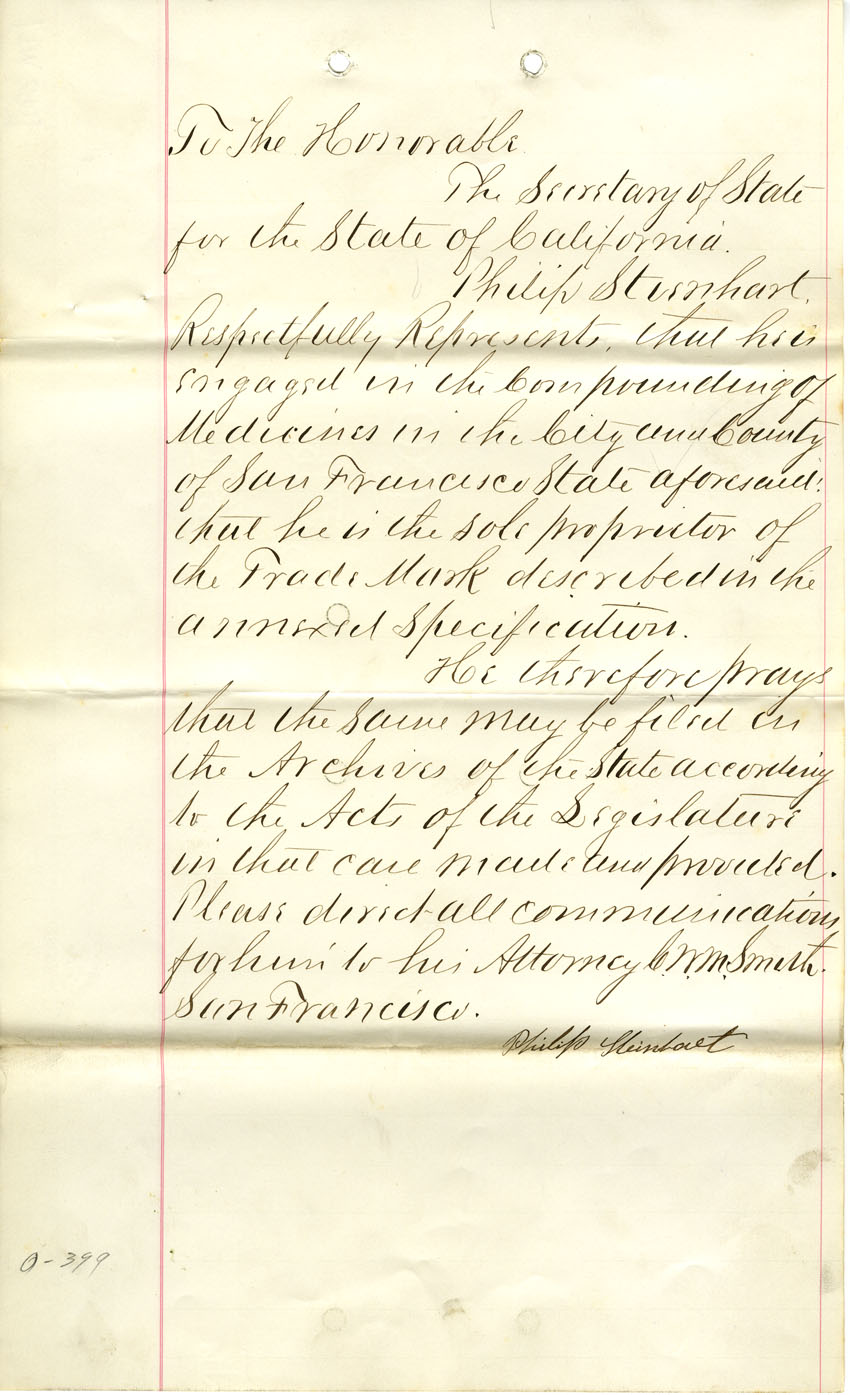 To The Honorable
The Secretary of State
for the State of California.
Philip Steinhart.
Respectfully Represents, that he is
engaged in the Compounding of
Medicines in the City and County
of San Francisco State aforesaid:
that he is the sole proprietor of
the Trade Mark described in the
annexed Specification.
He therefore prays
that the same may be filed in
the Archives of the State according
to the Acts of the Legislature
in that case made and provided.
Please direct all communications,
for him to his Attorney C. Wm. Smith.
San Francisco.
Philip Steinhart
O-399